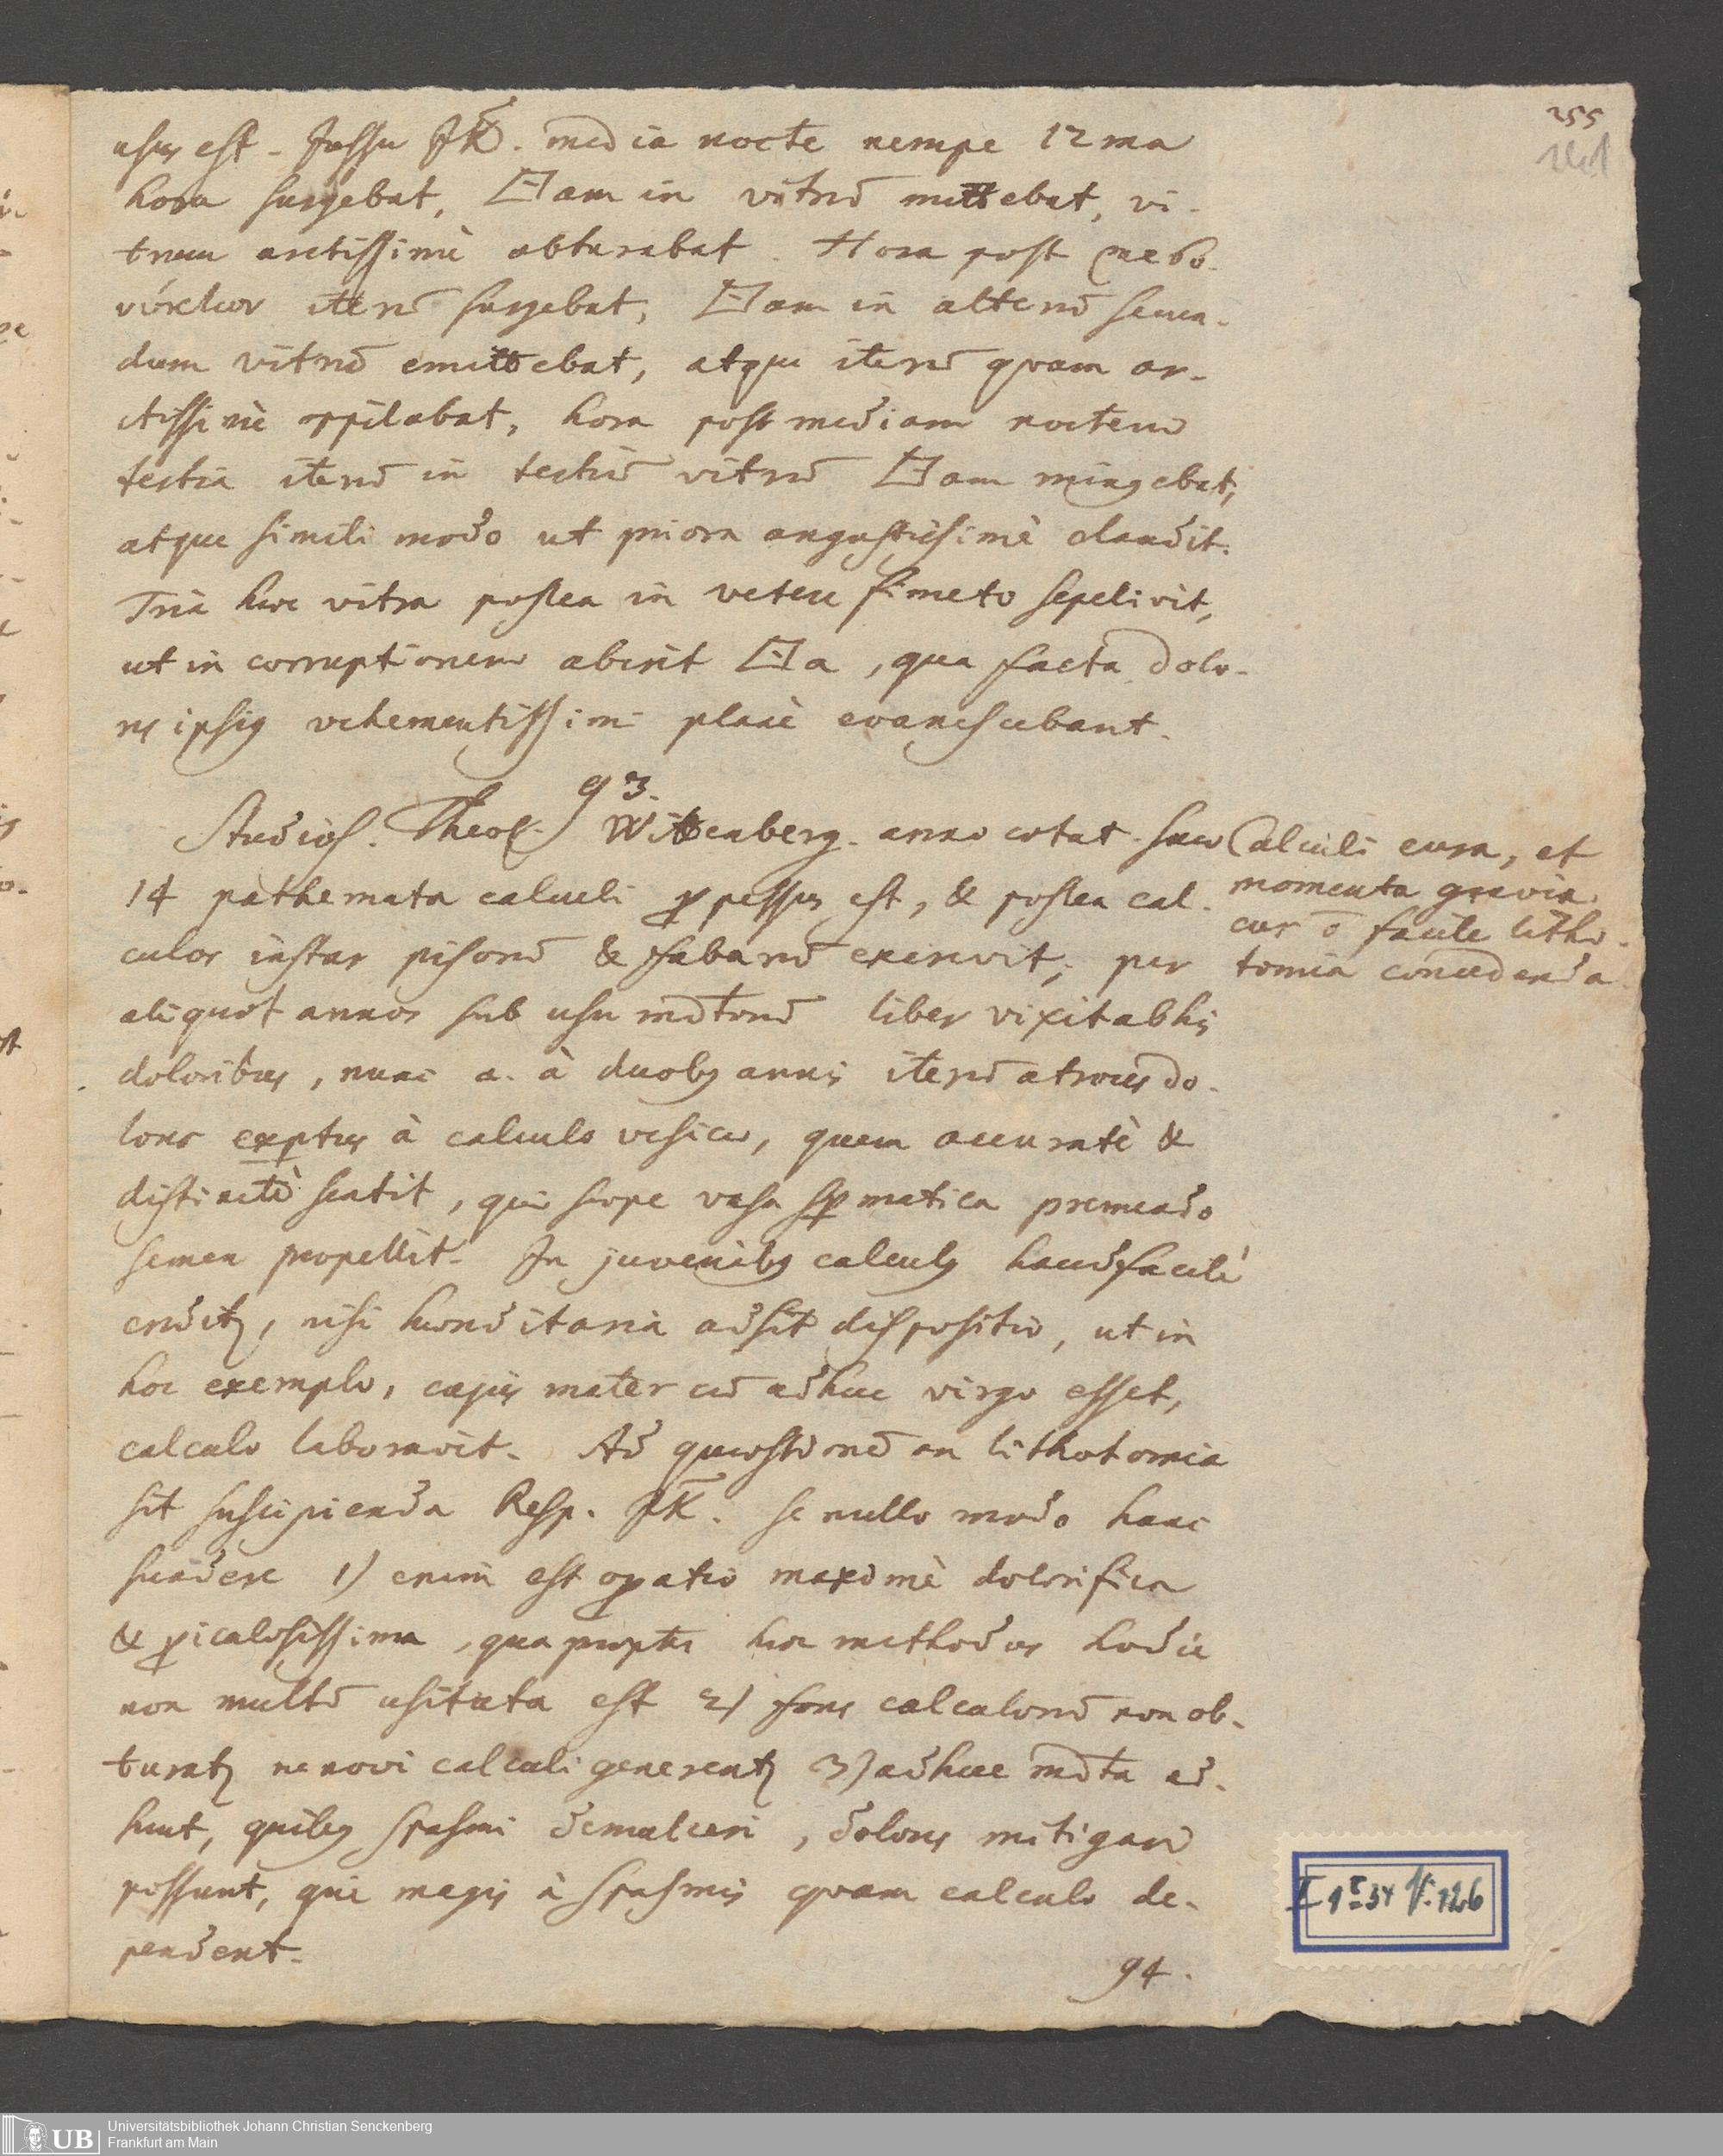 255
usus est. Jussu JK. media nocte nempe 12 ma
hora surgebat, □am in vitrū mittebat, vi-
trum arctissimè obturabat. Hora post
iterū surgebat, □am in alterū secun-
dum vitrū emittebat, atque iterū quam ar-
ctissimè oppilabat, hora post mediam noctem
tertia iterū in tertiū vitrū □am mingebat,
atque simili modo ut priora angustissimè clausit.
Tria haec vitra postea in vetere fimeto sepelivit,
ut in corruptionem abirit □a, qua facta dolo-
res ipsius vehementissimi planè evanescebant.
93.
Studios. Theol. Wittenberg. anno aetat. suae
14 pathemata calculi perpessus est, & postea cal-
culos instar pisorū & fabarū excrevit, per
aliquot annos sub usu mdtorū liber vixit ab his
doloribus, nunc a. à duobus annis iterū atroces do-
lores exptus à calculo vesicae, quem accuratè &
distinctè sentit, qui saepe vasa spmatica premendo
semen propellit. In juvenibus calculus haud facilè
creditur, nisi haereditaria adsit dispositio, ut in
hoc exemplo, cujus mater cū adhuc virgo esset,
calculo laboravit. Ad quaestionē an lithotomia
sit suscipienda Resp. JK. se nullo modo hanc
suadere 1) enim est operatio maximè dolorifica
& periculosissima, quapropter haec methodus hodie
non multū usitata est 2) fons calculorū non ob-
turatur ne novi calculi generentur 3) adhuc mdta ad-
sunt, quibus spasmi demulceri, dolores mitigari
possunt, qui magis à spasmis quam calculo de-
pendent.
94.
Calculi cura, et
momenta gravia
cur ō facile litho-
tomia concedenda.
Universitätsbibliothek Johann Christian Senckenberg
UB Frankfurt am Main